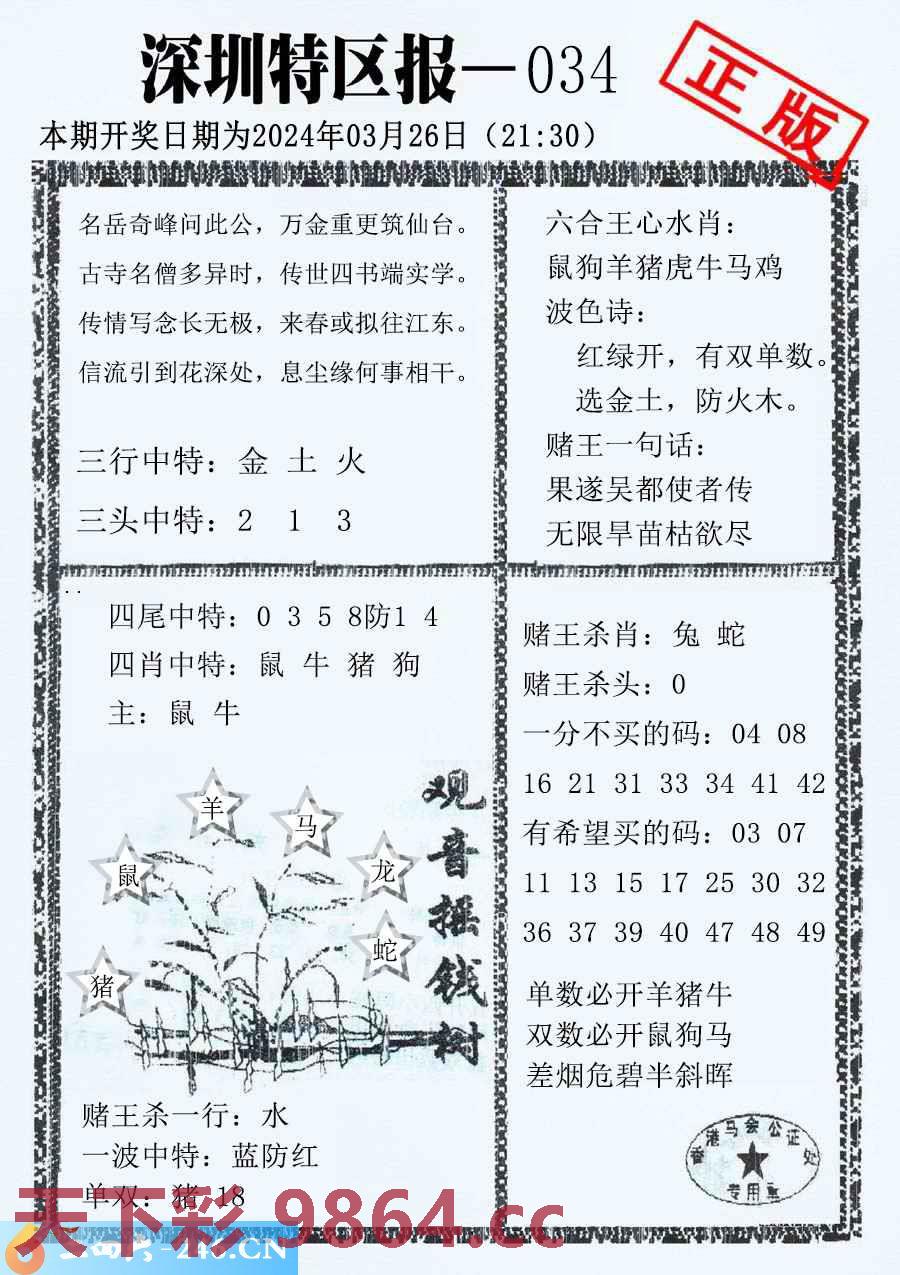 深圳特区报—034
正版
本期开奖日期为2024年03月26日（21:30）
名岳奇峰问此公，万金重更筑仙台。
古寺名僧多异时，传世四书端实学。
传情写念长无极，来春或拟往江东。
信流引到花深处，息尘缘何事相干。
三行中特：金 土 火
三头中特：2 1 3
六合王心水肖：
鼠狗羊猪虎牛马鸡
波色诗：
红绿开，有双单数。
选金土，防火木。
赌王一句话：
果遂吴都使者传
无限旱苗枯欲尽
四尾中特：0 3 5 8防1 4
四肖中特：鼠 牛 猪 狗
主：鼠 牛
羊
马
鼠
龙
蛇
猪
观音摇钱树
赌王杀一行：水
一波中特：蓝防红
单双：猪 18
赌王杀肖：兔 蛇
赌王杀头：0
一分不买的码：04 08
16 21 31 33 34 41 42
有希望买的码：03 07
11 13 15 17 25 30 32
36 37 39 40 47 48 49
单数必开羊猪牛
双数必开鼠狗马
差烟危碧半斜晖
香港马会公证处
专用章
天下彩 9864.cc